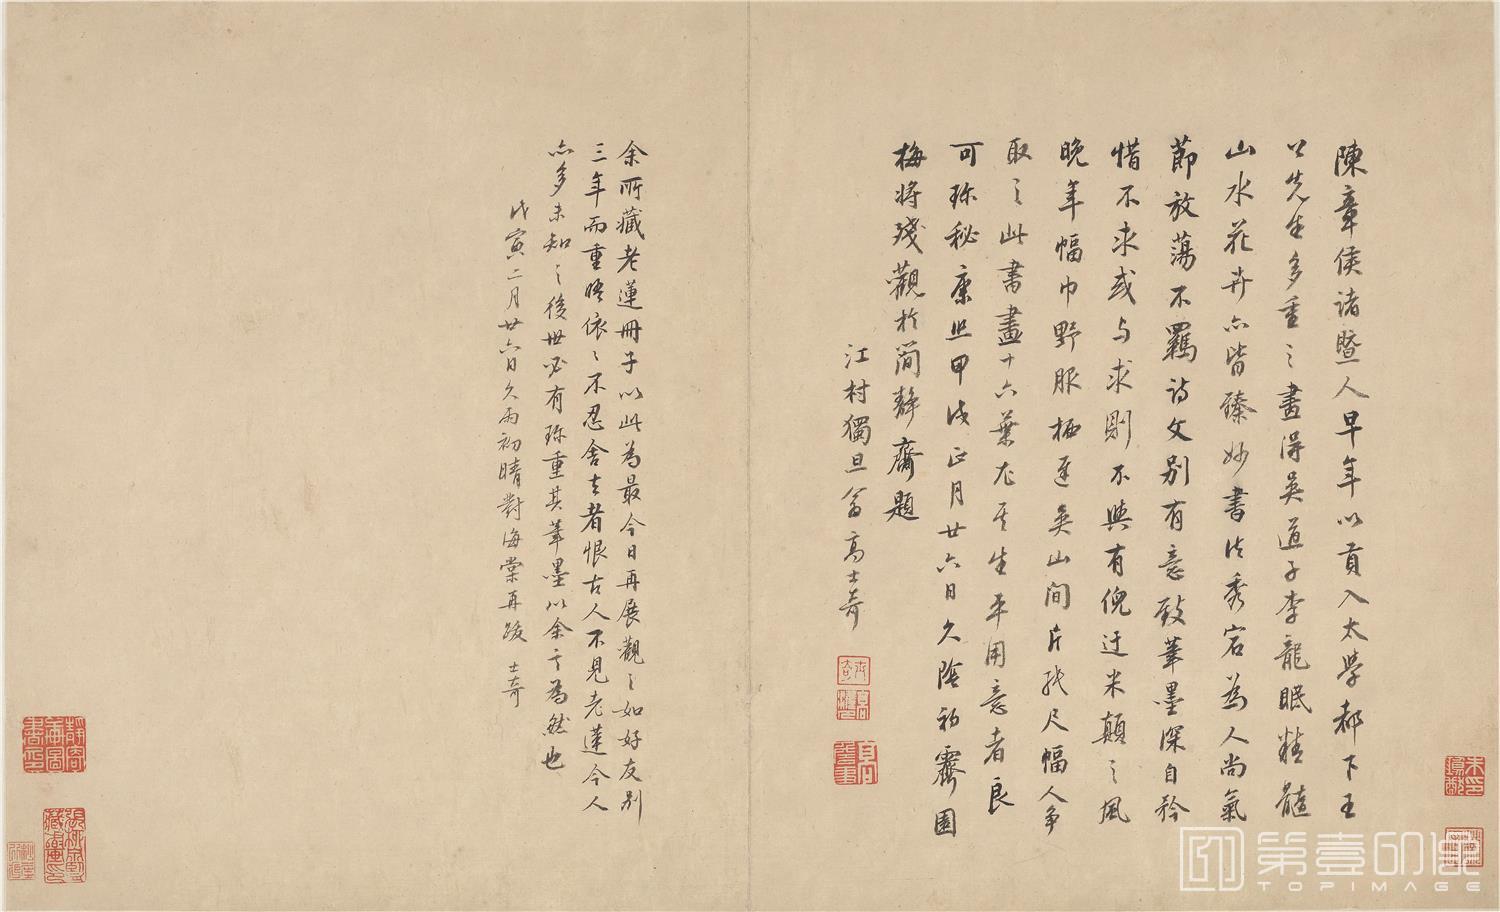 陳章侯諸暨人早年以貢入太學都下王
公先生多重之畫得吳道子李龍眠精髓
山水花卉亦皆臻妙書法秀宕為人尚氣
節放蕩不羈詩文別有意致筆墨深自矜
惜不求或与求則不與有倪迂米顛之風
晚年幅巾野服栖遲吳山間片紙尺幅人争
取之此書畫十六葉尤其生平用意者良
可珎秘康熙甲戌正月廿六日久陰初霽園
梅將殘觀於簡靜齋題
江村獨旦翁高士奇
余所藏老蓮冊子以此為最今日再展觀之如好友別
三年而重晤依依不忍舍去者恨古人不見老蓮今人
亦多未知之後世必有珎重其筆墨以余言為然也
戊寅二月廿六日久雨初晴對海棠再跋 士奇
第壹印像
TOPIMAGE